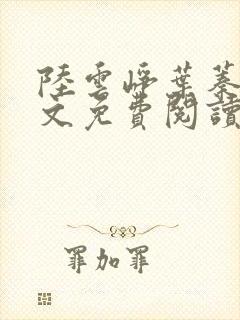 陸雲崢葉蓁
文免費閱讀
罪加罪